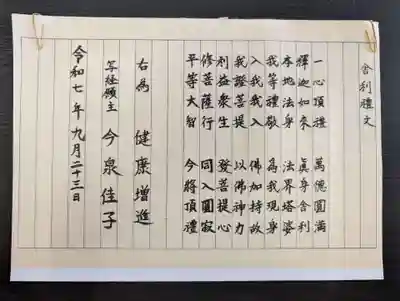 舎利禮文
一心頂禮　萬億圓滿
釋迦如来　眞身舎利
本地法身　法界塔婆
我等禮敬　為我現身
入我我入　佛加持故
我證菩提　以佛神力
利益衆生　發菩提心
修菩薩行　同入圓寂
平等大智　今将頂禮
右為　健康増進
写経願主　今泉佳子
令和七年九月二十三日